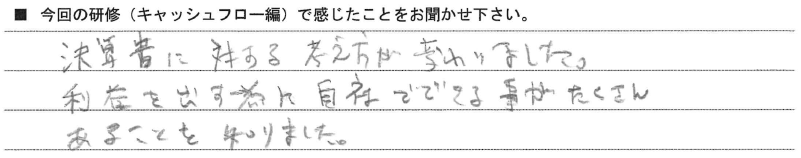 ■ 今回の研修（キャッシュフロー編）で感じたことをお聞かせ下さい。
決算書に対する考え方が変わりました。
利益を出す為に自社でできる事がたくさん
あることを知りました。